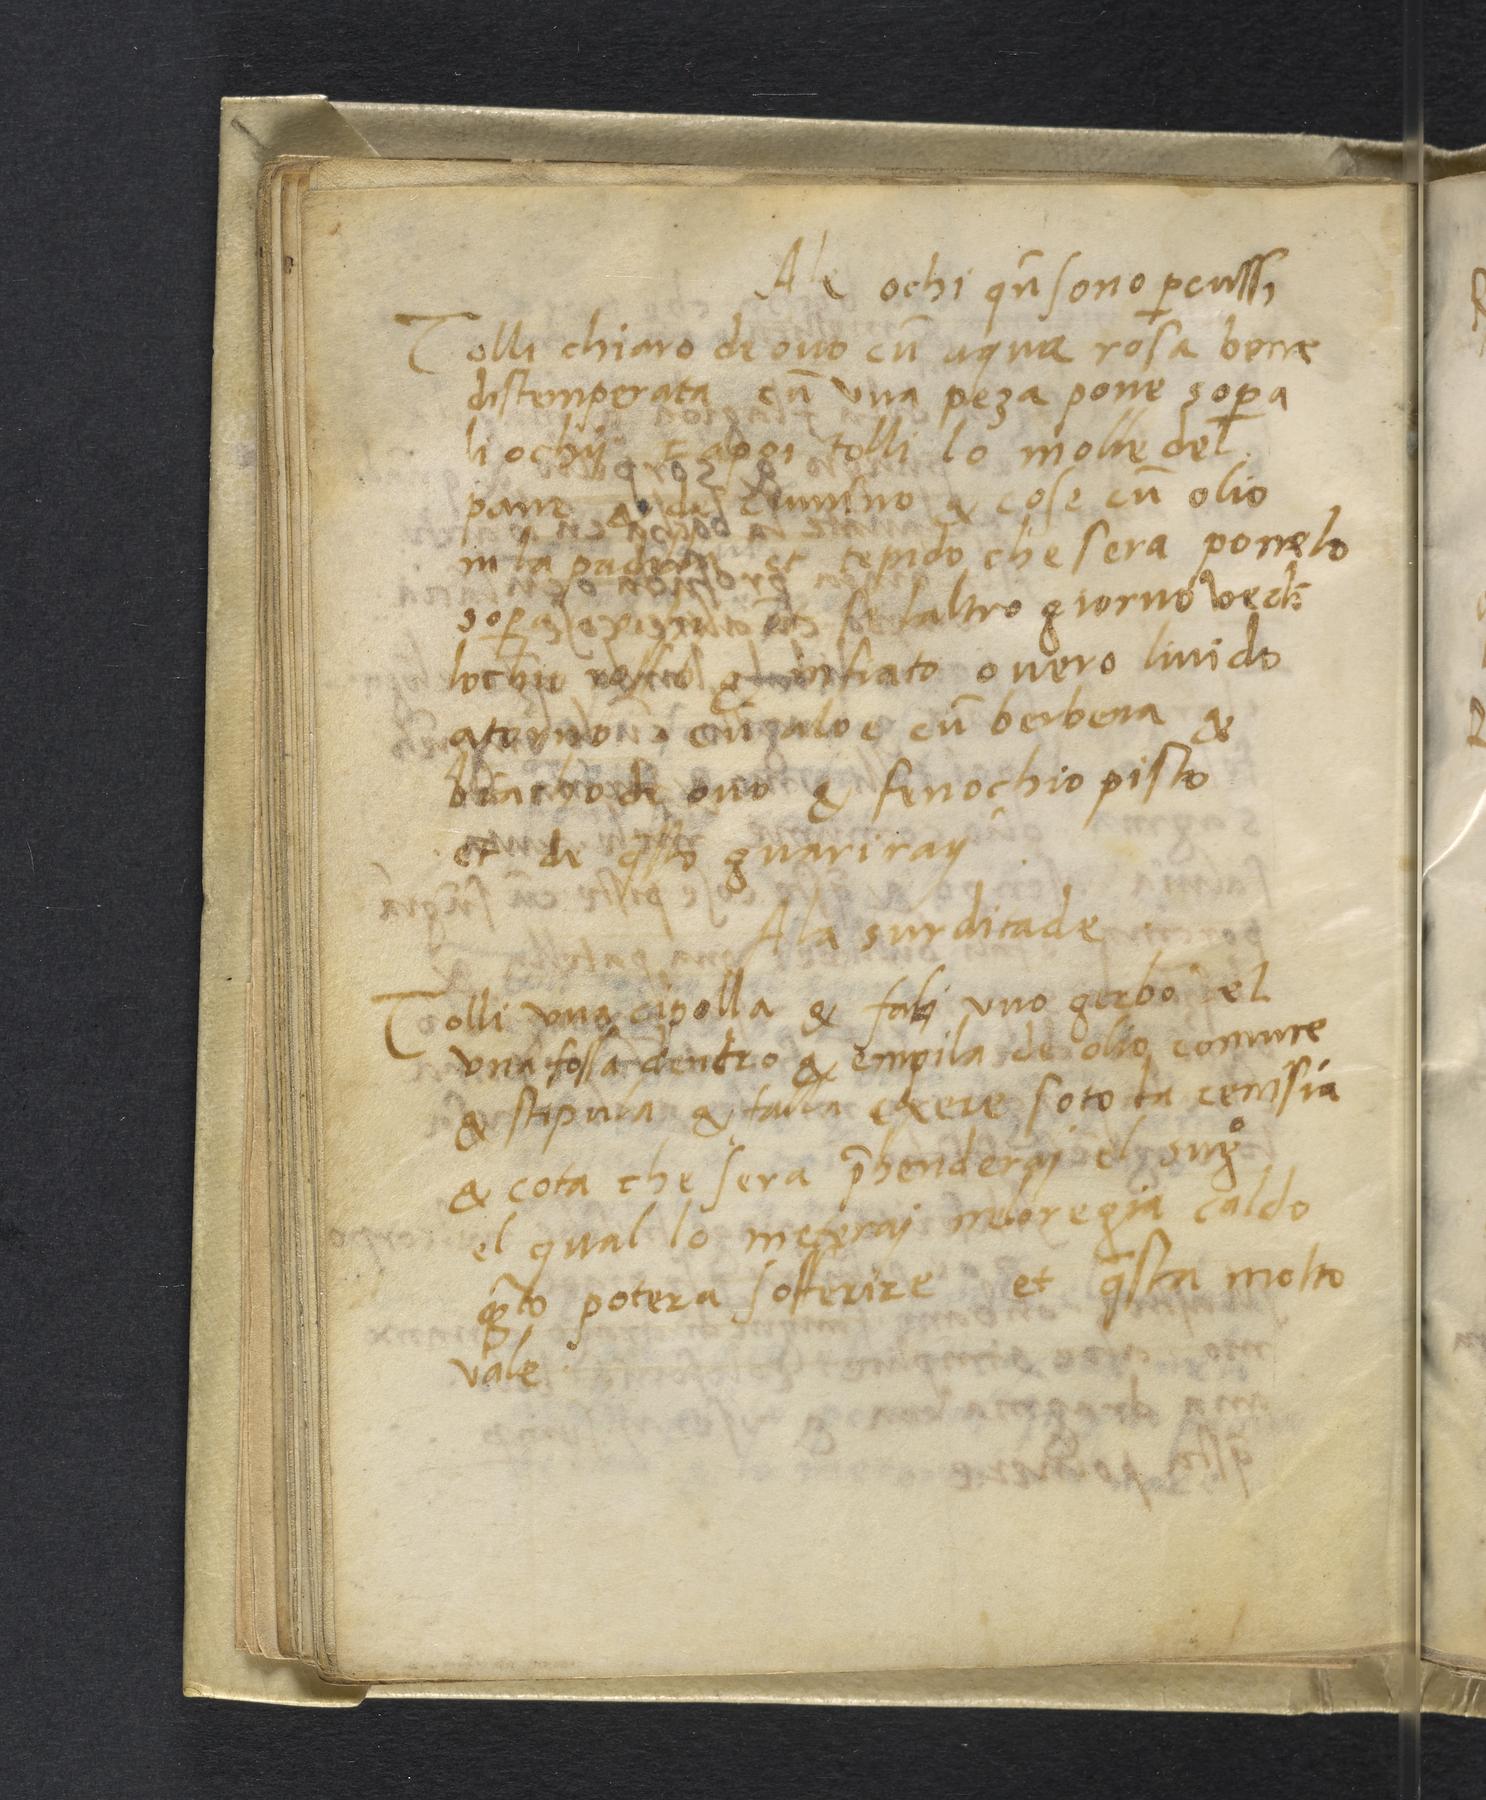 Ale ochi qn̄ sono pcussi
Tolli chiaro de ouo cū aqua rosa bene
distemperata cū vna peza pone sopa
li ochij et apoi tolli lo molle del
pane & de cumino & cose cū olio
in la padela et tepido che sera ponelo
sopa se laltro giorno
lochio rosso & infiato overo liuido
atorno cū aloe cū berbena &
biācho de ouo & fenochio pisto
et de q̄sto guariray
Ala surditade
Tolli vna cipolla & fali vno gerbo īel
vna fossa dentro & empila de olio comune
& stipula & falla cocere soto la cenisia
& cota che sera p̄henderaj el sugo
el qual lo meteraj neloregia caldo
q̄to potera sofferire et q̄sta molto
vale